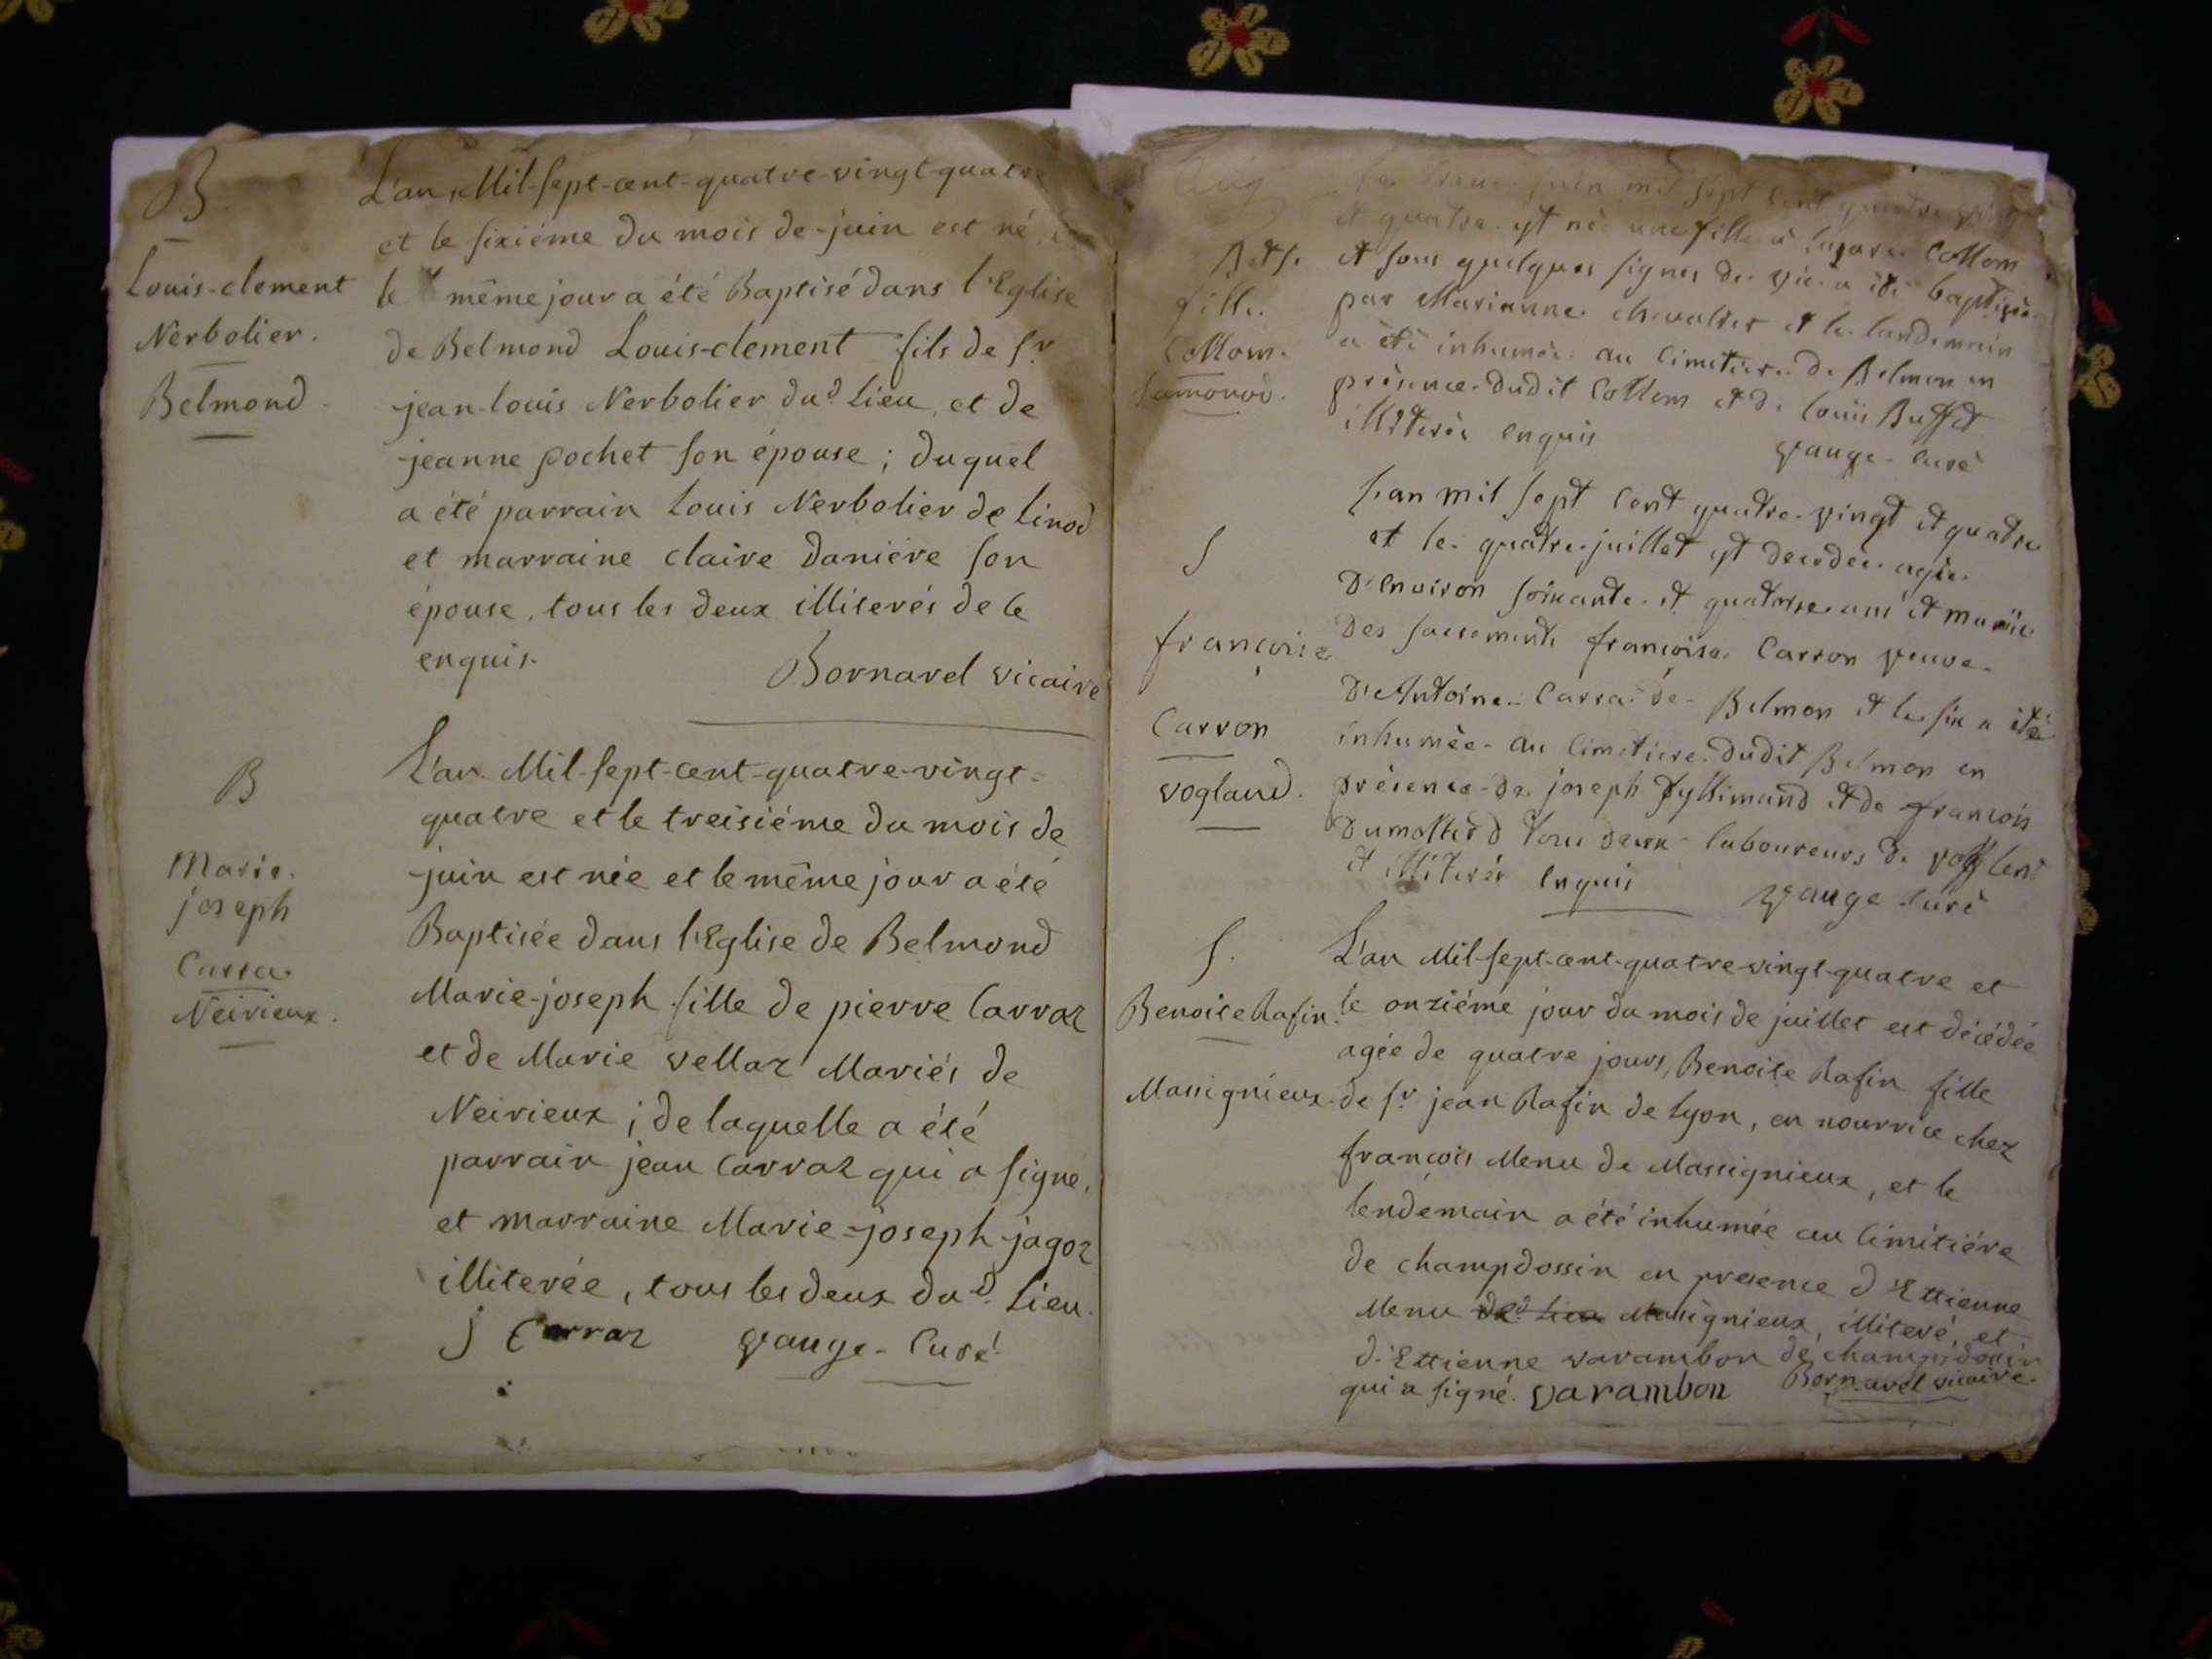 B.
Louis-clement
Nerbolier.
Belmond.
L'an Mil-sept-cent-quatre-vingt-quatre
et le sixiéme du mois de juin est né, et
le même jour a été Baptisé dans l'Eglise
de Belmond Louis-clement fils de Sr
jean-louis Nerbolier dud. Lieu, et de
jeanne pochet son épouse; duquel
a été parrain Louis Nerbolier de Linod
et marraine claire daniére son
épouse, tous les deux illiterés de ce
enquis.
Bornarel vicaire
B
Marie.
joseph
Carra
Neirieux.
L'an Mil-sept-cent-quatre-vingt-
quatre et le treisiéme du mois de
juin est née et le même jour a été
Baptisée dans l'Eglise de Belmond
Marie-joseph fille de pierre Carraz
et de Marie vellaz Mariés de
Neirieux; de laquelle a été
parrain jean Carraz qui a signe,
et marraine Marie-joseph jagoz
illiterée, tous les deux dud. Lieu.
J Carraz vauge-Curé
B et S.
fille.
Collom.
juin mil sept cent quatre vingt
et quatre est né une fille à Collom
et sous quelques signes de vie a été baptisée
par Marianne chevalier et le landemain
a été inhumée au cimetiere de Belmon en
présence dudit Collom et de louis Buffet
illiterés enquis
vauge-curé
S
françoise
Carron
vogland.
L'an mil sept cent quatre-vingt et quatre
et le quatre juillet est decedée agée
d'environ soixante et quatorse ans et munie
des sacrements françoise Carron veuve
d'Antoine Carra de Belmon et le six a été
inhumée au cimetiere dudit Belmon en
présence de joseph et de françois
tous deux laboureurs de
et illiterés enquis vauge curé
S.
Benoite Rafin.
Massignieux.
L'an Mil-sept-cent-quatre-vingt-quatre et
le onziéme jour du mois de juillet est décédée
agée de quatre jours, Benoite Rafin fille
de Sr jean Rafin de Lyon, en nourrice chez
françois Menu de Massignieux, et le
lendemain a été inhumée au cimitiére
de champdossin en presence d'Ettienne
Menu ded. Lieu Massignieux, illiteré, et
d'Ettienne varambon de champdossin
qui a signé. varambon Bornarel vicaire.